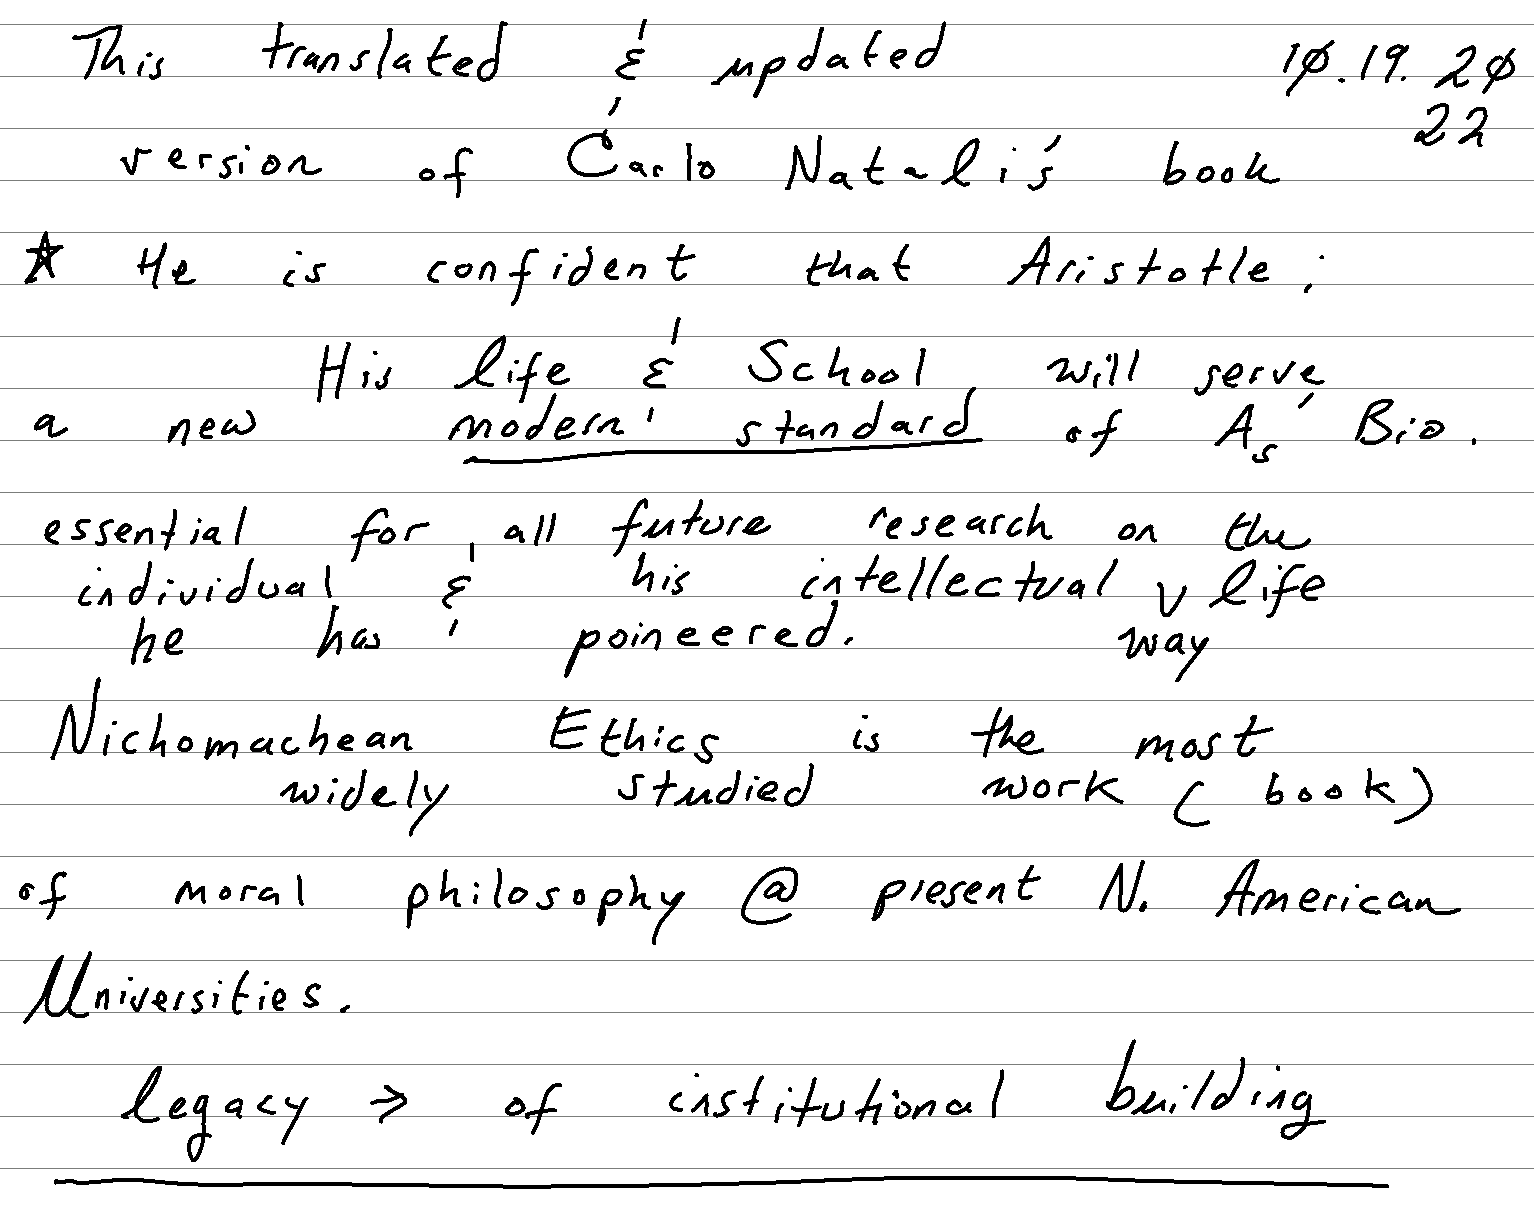 This translated & updated 10.19.20
22
version of Carlo Natali's book
☆ He is confident that Aristotle;
His life & School will serve
a new modern standard of As' Bio.
essential for all future research on the
individual & his intellectual ∨ life
he has poineered. way
Nichomachean Ethics is the most
widely studied work (book)
of moral philosophy @ present N. American
Universities.
legacy → of institutional building